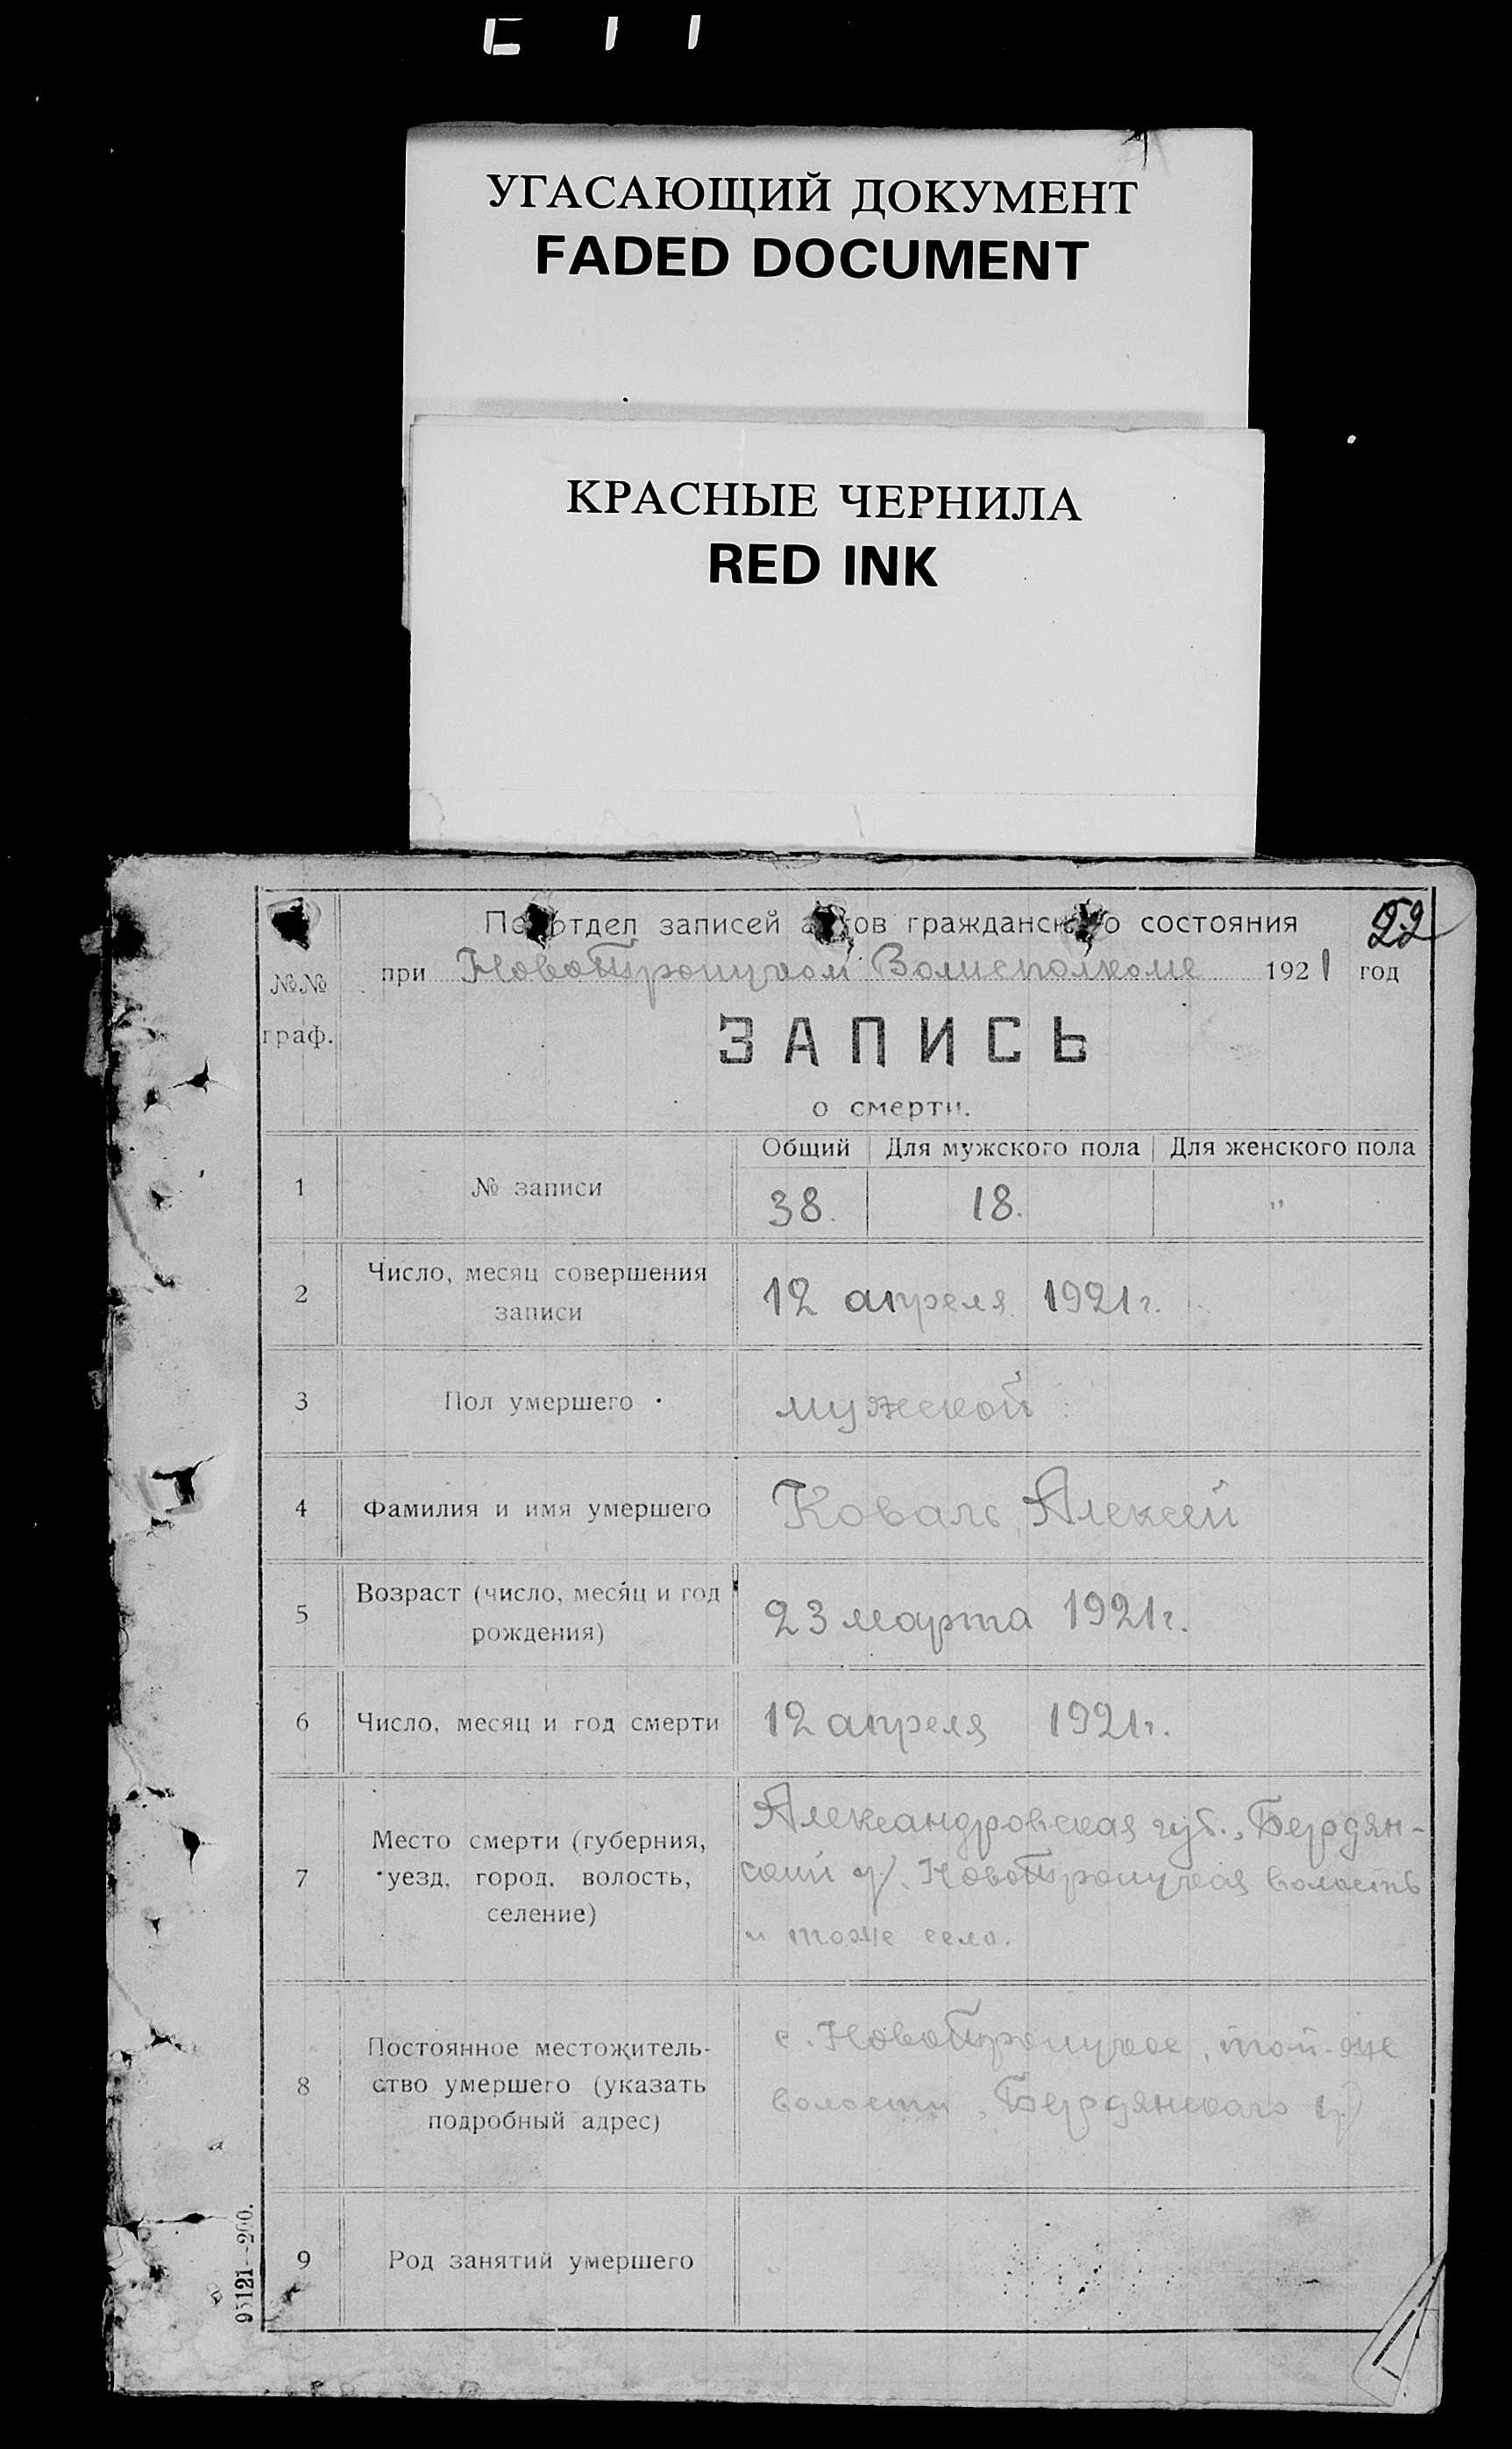 УГАСАЮЩИЙ ДОКУМЕНТ
FADED DOCUMENT
КРАСНЫЕ ЧЕРНИЛА
RED INK
22
отдел записей ов гражданск о состояния
при Новотроицком Волисполкоме 1921 год
№№ граф.
ЗАПИСЬ
о смерти.
Общий Для мужского пола Для женского пола
1 № записи 38. 18. "
2 Число, месяц совершения
записи
12 апреля 1921 г.
3 Пол умершего мужской
4 Фамилия и имя умершего Коваль Алексей
5 Возраст (число, месяц и год
рождения)
23 марта 1921 г.
6 Число, месяц и год смерти 12 апреля 1921 г.
7 Место смерти (губерния,
уезд, город, волость,
селение)
Александровская губ., Бердян-
ский у. Новотроицкая волость
и тоже село.
8 Постоянное местожитель-
ство умершего (указать
подробный адрес)
с. Новотроицкое, той-же
волости, Бердянского у.
9 Род занятий умершего